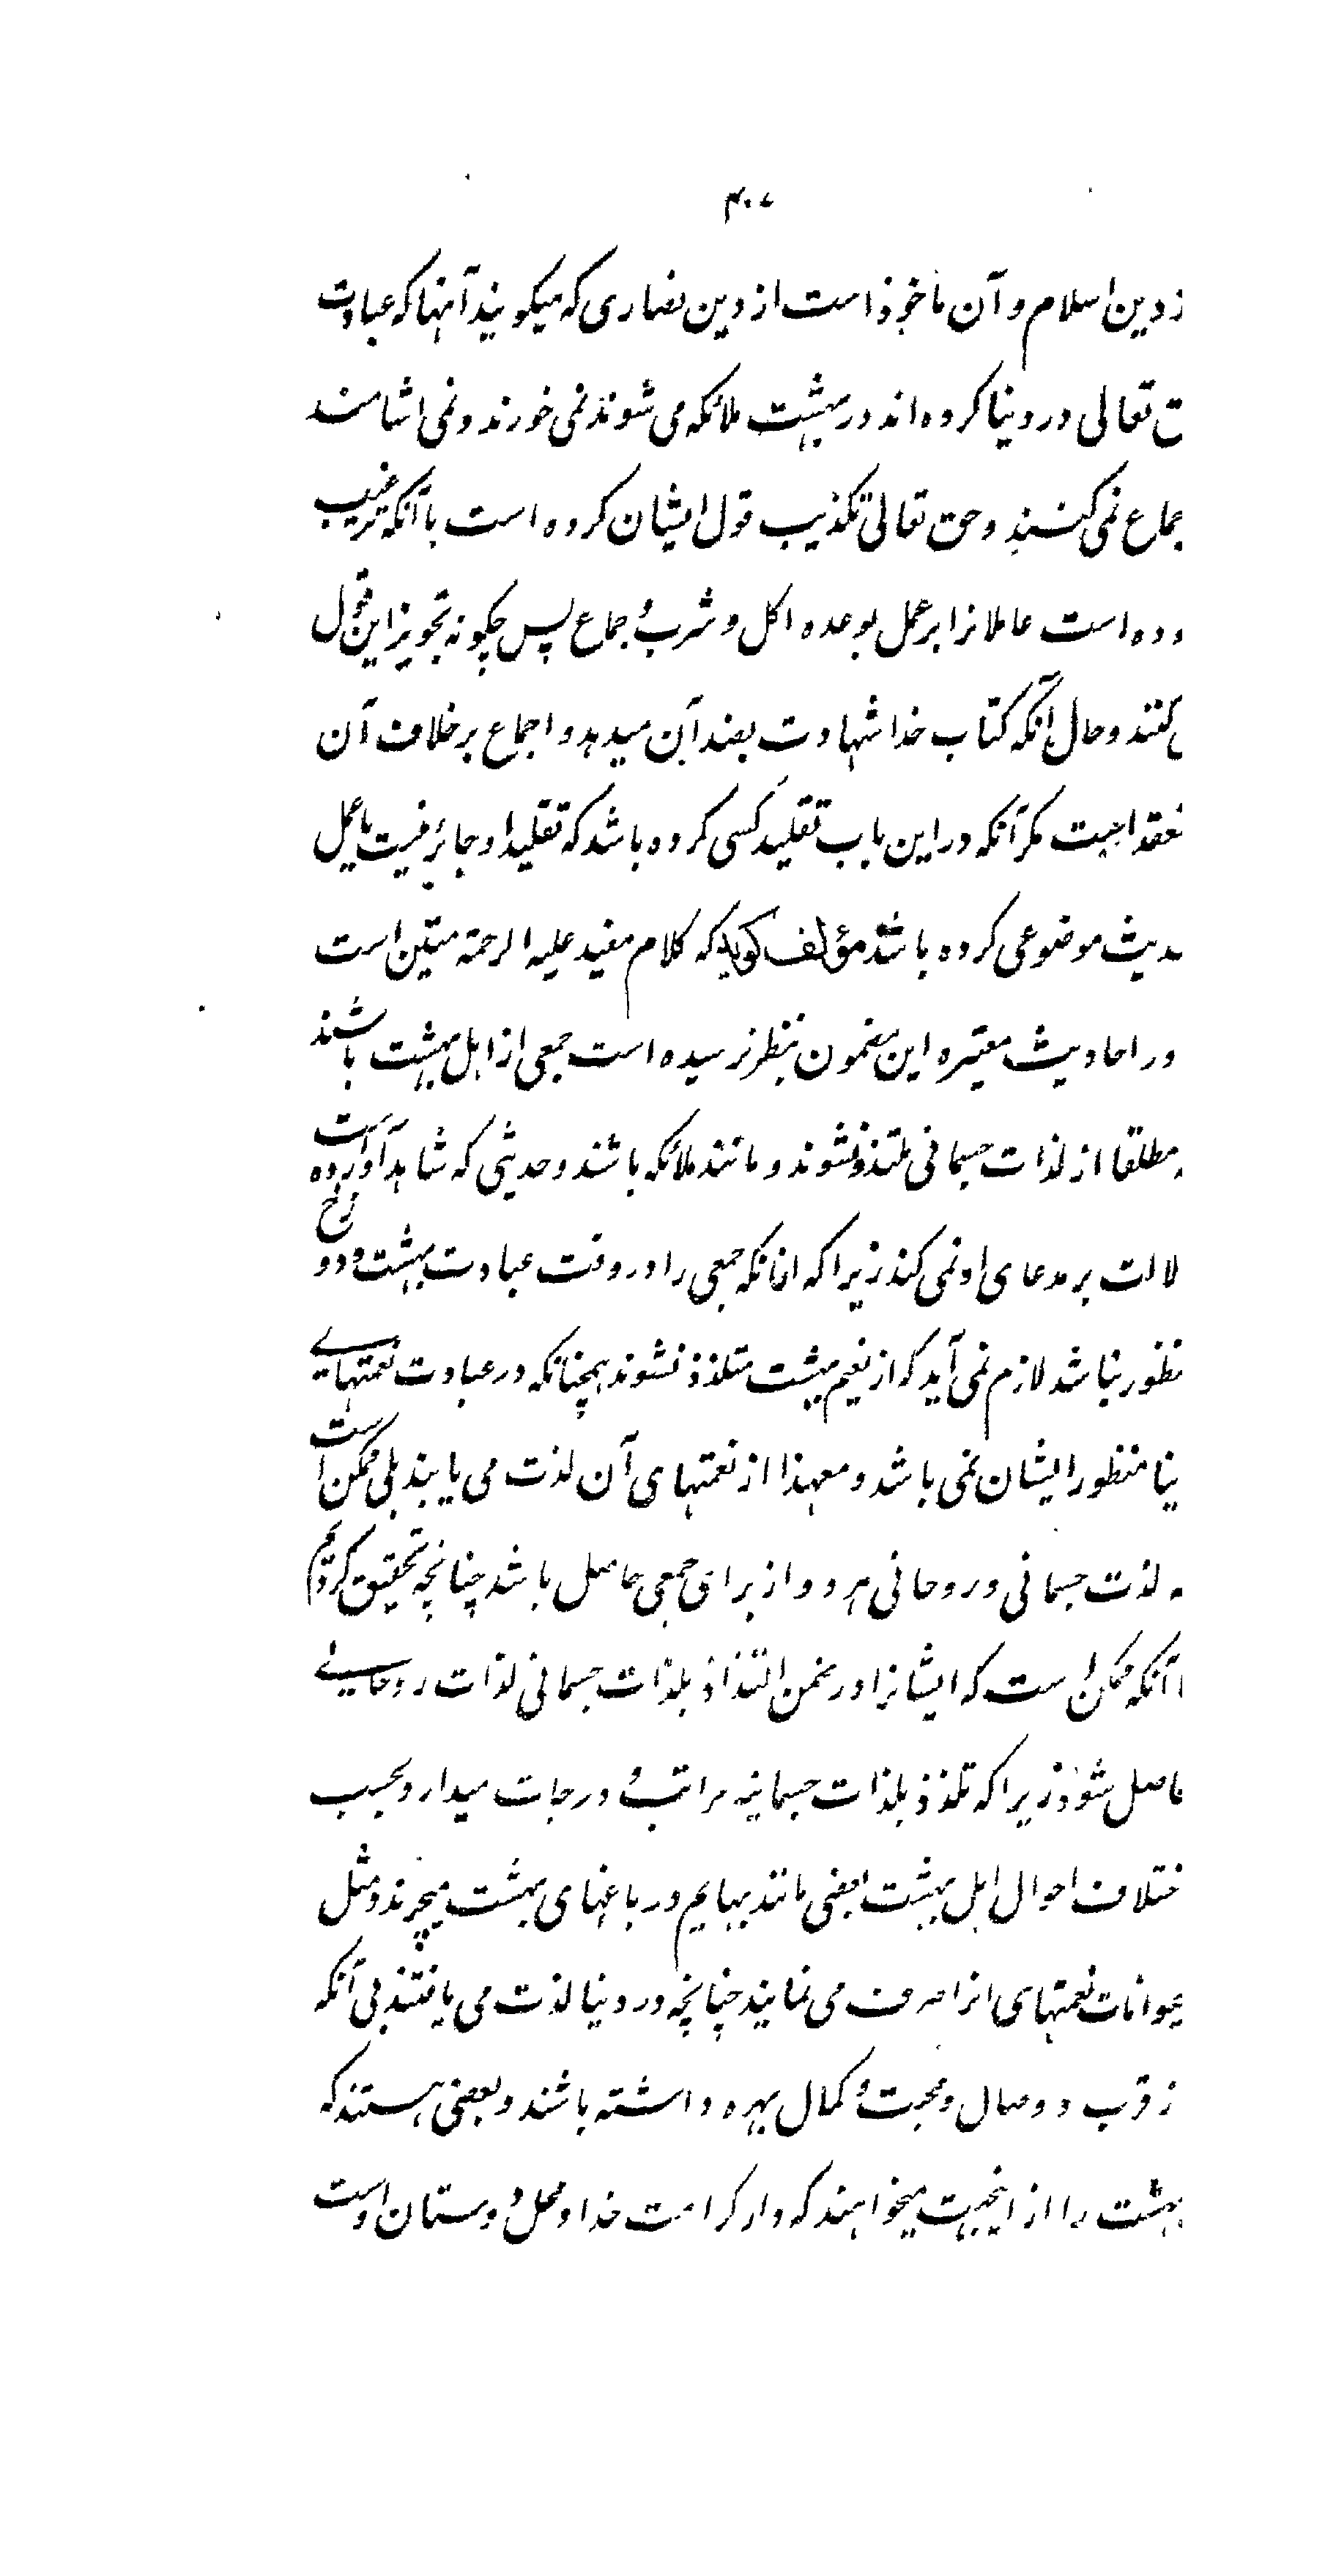 ۴۰۷
ز دین اسلام و آن ماخوذ است از دین نصاری که میکویند آنها که عبادت
ق تعالی در دنیا کرده اند در بهشت ملائکه می شوند نمی خورند و نمی اشامند
جماع نمی کنند و حق تعالی تکذیب قول ایشان کرده است باآنکه ترغیب
وده است عاملانرا بر عمل بوعده اکل و شرب و جماع پس چکونه تجویز این قول
کنند و حال آنکه کتاب خدا شهادت بضد آن میدهد و اجماع بر خلاف آن
نعقد است مکر آنکه در این باب تقلید کسی کرده باشد که تقلید او جائز نیست یا عمل
دیث موضوعی کرده باشد مؤلف کوید که کلام مفید علیه الرحمة متین است
در احادیث معتبره این مضمون بنظر نرسیده است جمعی از اهل بهشت باشند
مطلقا از لذات جسمانی ملتذ نشوند و مانند ملائکه باشند و حدیثی که شاهد آورده است
لالت بر مدعای او نمی کند زیرا که انانکه جمعی را در وقت عبادت بهشت و دوزخ
نظور نباشد لازم نمی آید که از نعیم بهشت متلذذ نشوند همچنانکه در عبادت نعمتهای
نیا منظور ایشان نمی باشد و معهذا از نعمتهای آن لذت می یابند بلی ممکن است
ه لذت جسمانی و روحانی هر دو از برای جمعی حاصل باشد چنانچه تحقیق کردیم
ا آنکه ممکن است که ایشانرا در ضمن التذاذ بلذات جسمانی لذات روحانی
حاصل شود زیرا که تلذذ بلذات جسمانیه مراتب و درجات میدارد بحسب
ختلاف احوال اهل بهشت بعضی مانند بهایم در باغهای بهشت میچرند و مثل
حیوانات نعمتهای انرا صرف می نمایند چنانچه در دنیا لذت می یافتند بی آنکه
ز قرب و وصال و محبت و کمال بهره داشته باشند و بعضی هستند که
بهشت را از اینجهت میخواهند که دار کرامت خدا و محل دوستان اوست